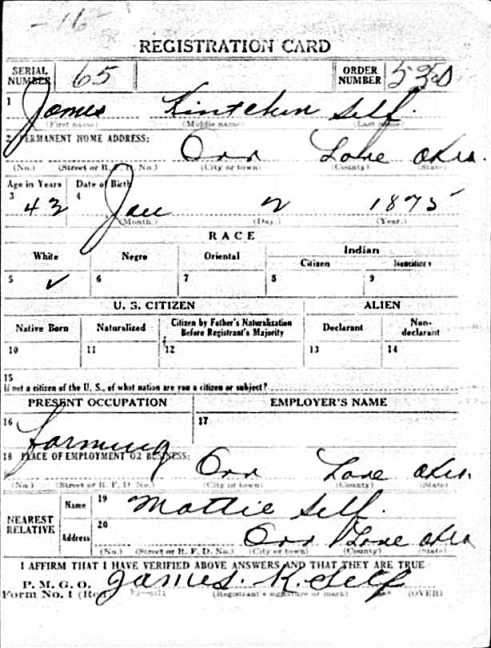 -16-
REGISTRATION CARD
SERIAL NUMBER 65 ORDER NUMBER
1 James Kintchen Self.
(First name) (Middle name) (Last name)
2 PERMANENT HOME ADDRESS: Orr Love Okla.
(No.) (Street or R. F. D. No.) (City or town) (County) (State)
Age in Years Date of Birth
3 43 4 Jan 2 1875
(Month.) (Day.) (Year.)
RACE
White Negro Oriental Indian
Citizen
5 ✓ 6 7 8 9
U. S. CITIZEN ALIEN
Native Born Naturalized Citizen by Father's Naturalization Before Registrant's Majority Declarant Non-declarant
10 11 12 13 14
15
If not a citizen of the U. S., of what nation are you a citizen or subject?
PRESENT OCCUPATION EMPLOYER'S NAME
16 farming 17
18 PLACE OF EMPLOYMENT OR BUSINESS: Orr Love Okla.
(No.) (Street or R. F. D. No.) (City or town) (County) (State)
NEAREST RELATIVE Name 19 Mattie Self.
Address 20 Orr Love Okla
(No.) (Street or R. F. D. No.) (City or town) (County) (State)
I AFFIRM THAT I HAVE VERIFIED ABOVE ANSWERS AND THAT THEY ARE TRUE
P. M. G. O. James. K. Self
Form No. 1 (Red) (Registrant's signature or mark) (OVER)